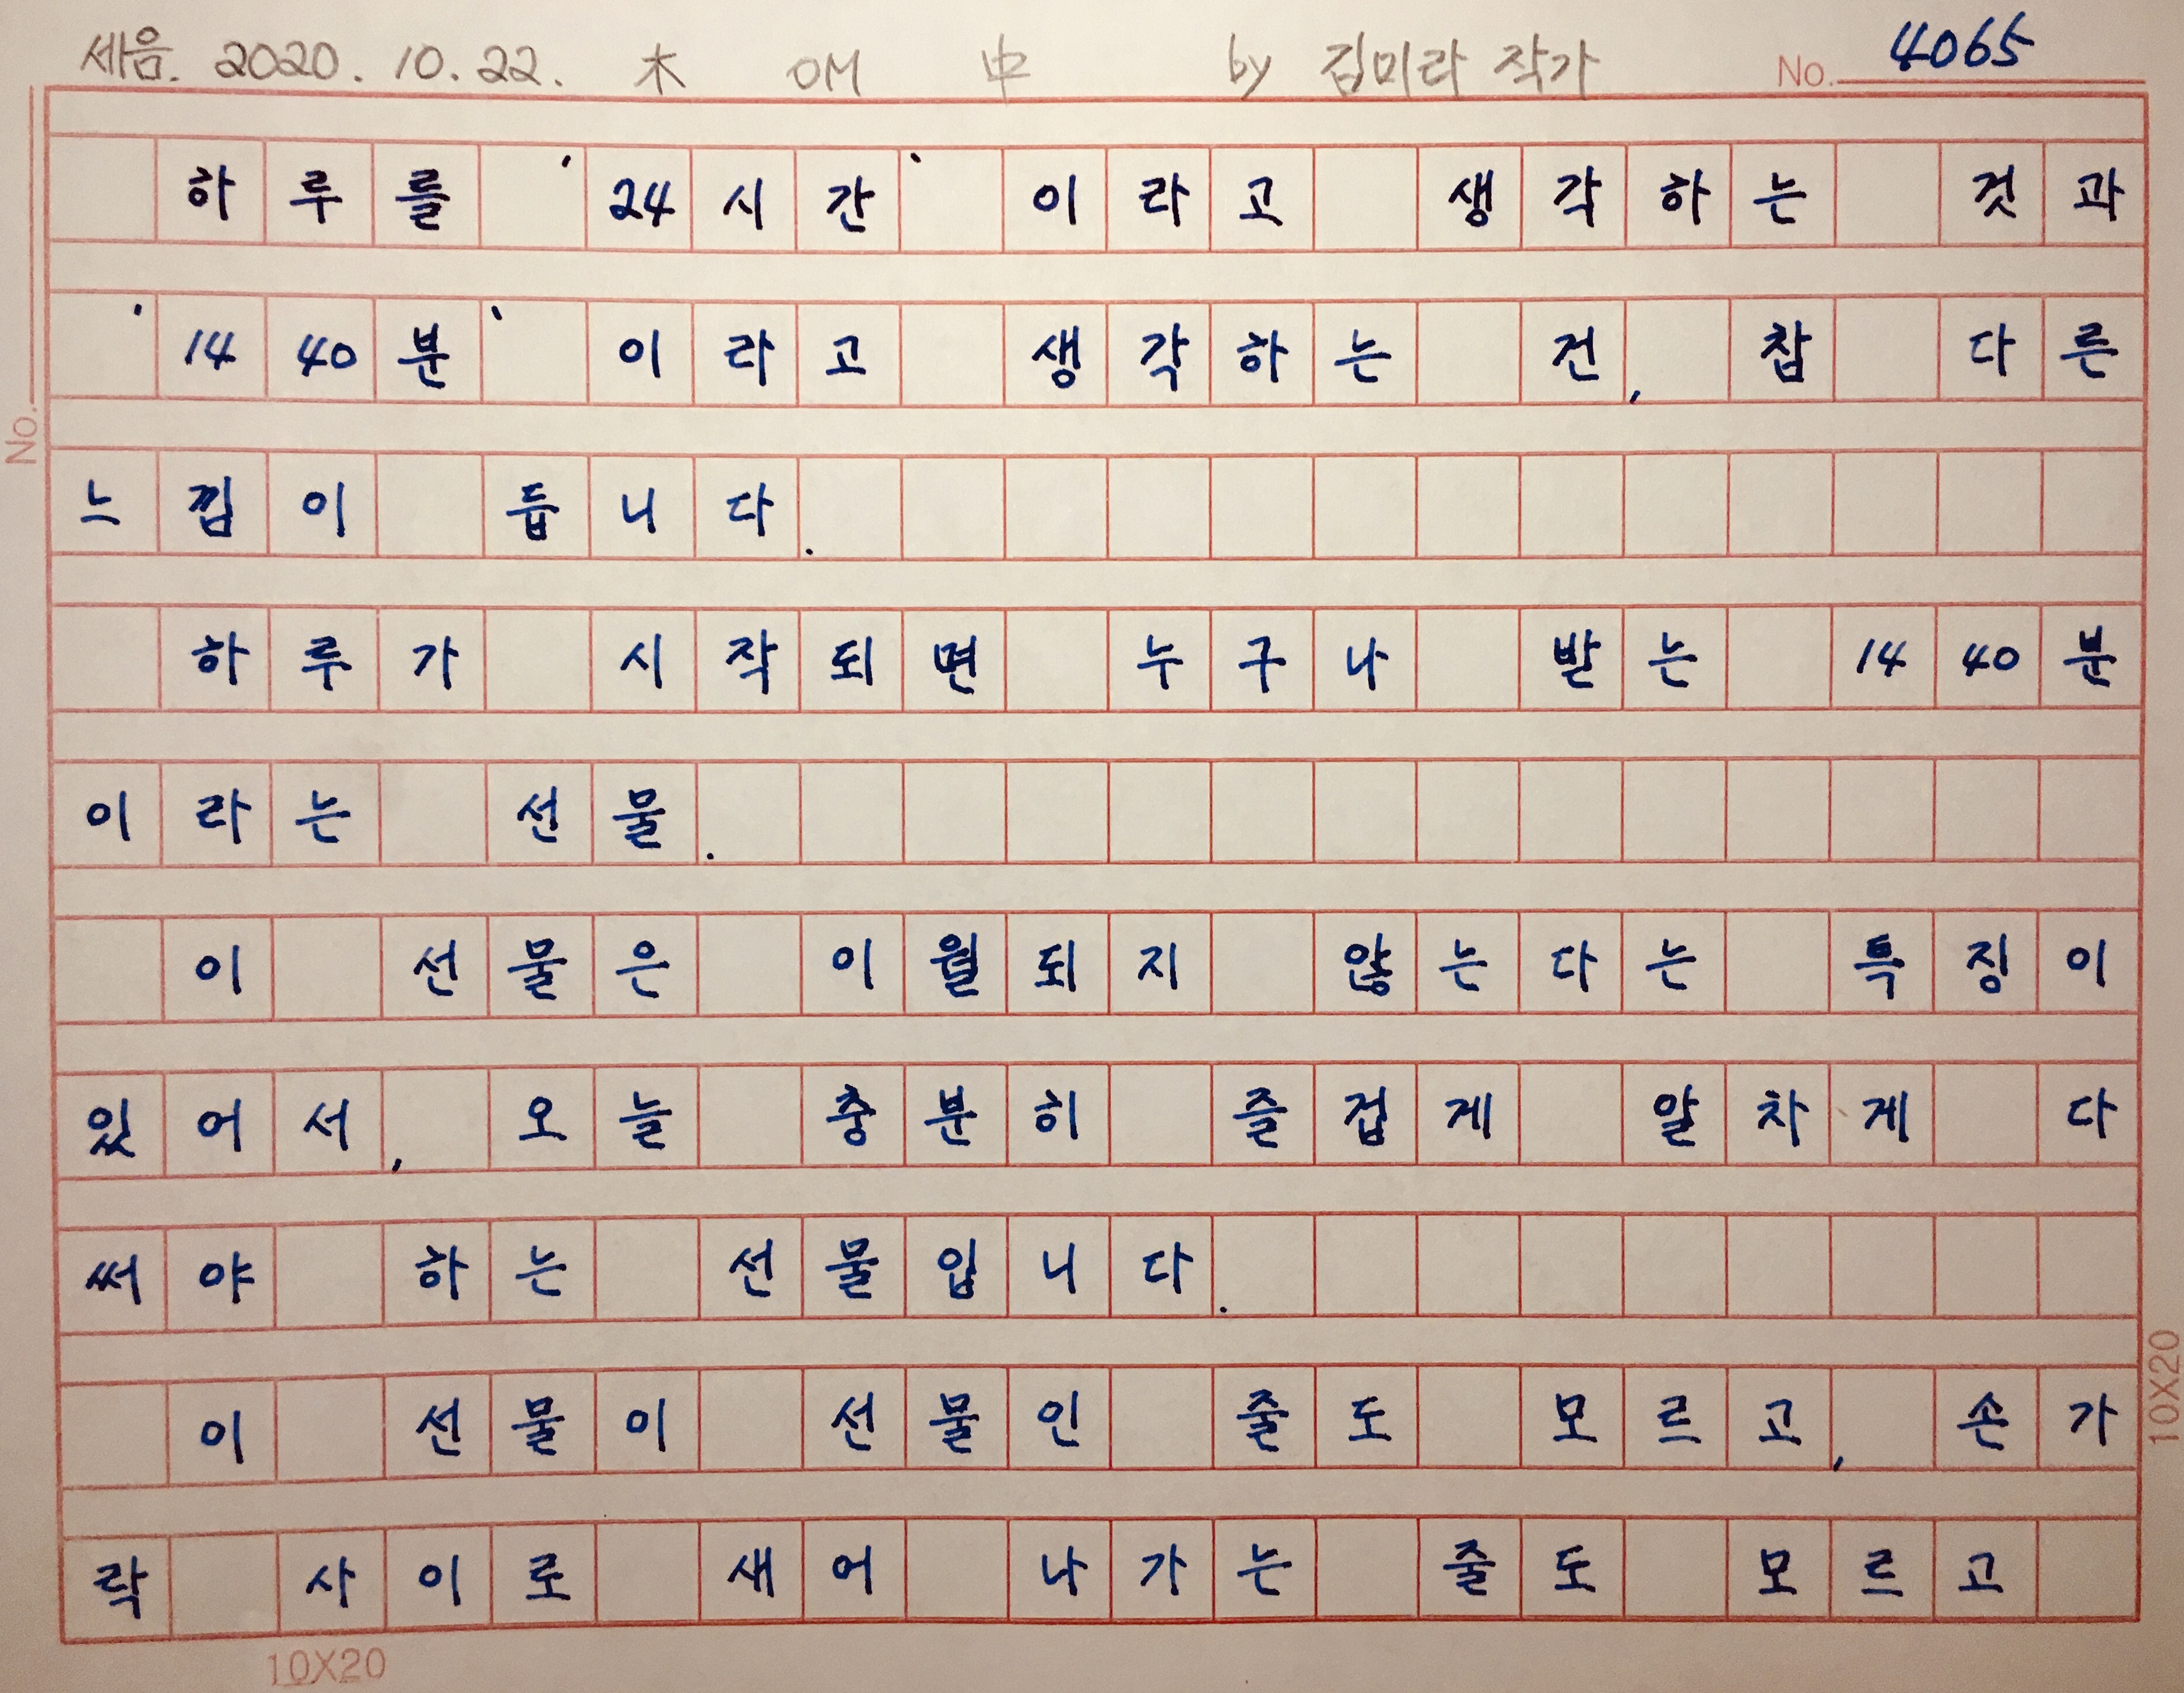 세음. 2020. 10. 22. 木 OM 中 by 김미라 작가 No. 4065
하루를 '24시간' 이라고 생각하는 것과
'1440분' 이라고 생각하는 건, 참 다른
No.
느낌이 듭니다.
하루가 시작되면 누구나 받는 1440분
이라는 선물.
이 선물은 이월되지 않는다는 특징이
있어서, 오늘 충분히 즐겁게 알차게 다
써야 하는 선물입니다.
이 선물이 선물인 줄도 모르고, 손가
10X20
락 사이로 새어 나가는 줄도 모르고
10X20